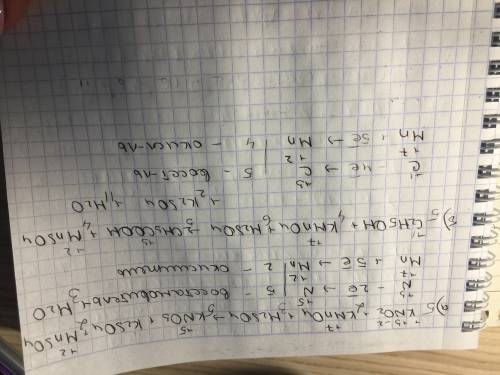 а) 5KNO₂ + 2KMnO₄ + 3H₂SO₄ → 5KNO₃ + K₂SO₄ + 2MnSO₄
+ 3H₂O
N⁺³ - 2ē → N⁺⁵ | 5 - восстановитель
Mn⁺⁷ + 5ē → Mn⁺² | 2 - окислитель
5C₂H₅OH + 4KMnO₄ + 6H₂SO₄ → 5CH₃COOH + 4MnSO₄
+ 2K₂SO₄ + 11H₂O
C - 4ē → C⁺³ | 5 - восст-ль
Mn⁺⁷ + 5ē → Mn⁺² | 4 - окисл-ль